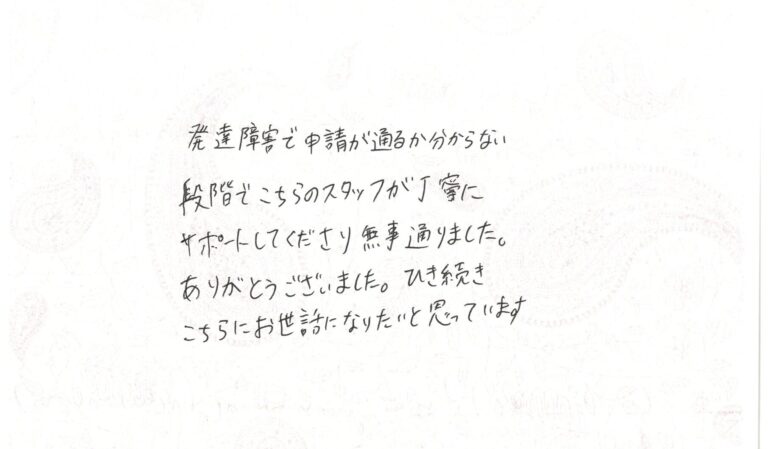 発達障害で申請が通るか分からない
段階でこちらのスタッフが丁寧に
サポートしてくださり無事通りました。
ありがとうございました。ひき続き
こちらにお世話になりたいと思っています